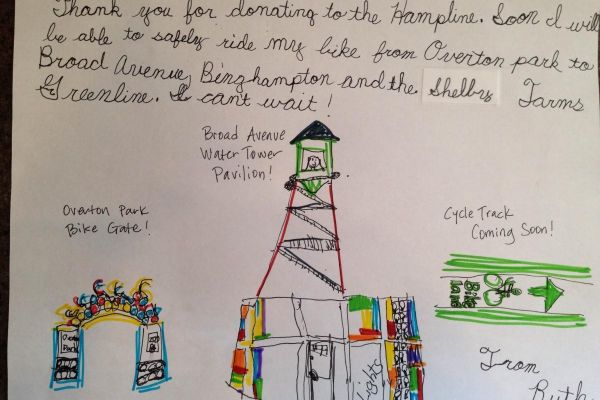 Thank you for donating to the Hampline. Soon I will
be able to safely ride my bike from Overton park to
Broad Avenue, Binghampton and the Shelby Farms
Greenline. I can't wait!
Broad Avenue
Water Tower
Pavilion!
Overton Park
Bike Gate!
Cycle Track
Coming Soon!
Overton
Park
Bike
Lane
Lights
From
Ruth